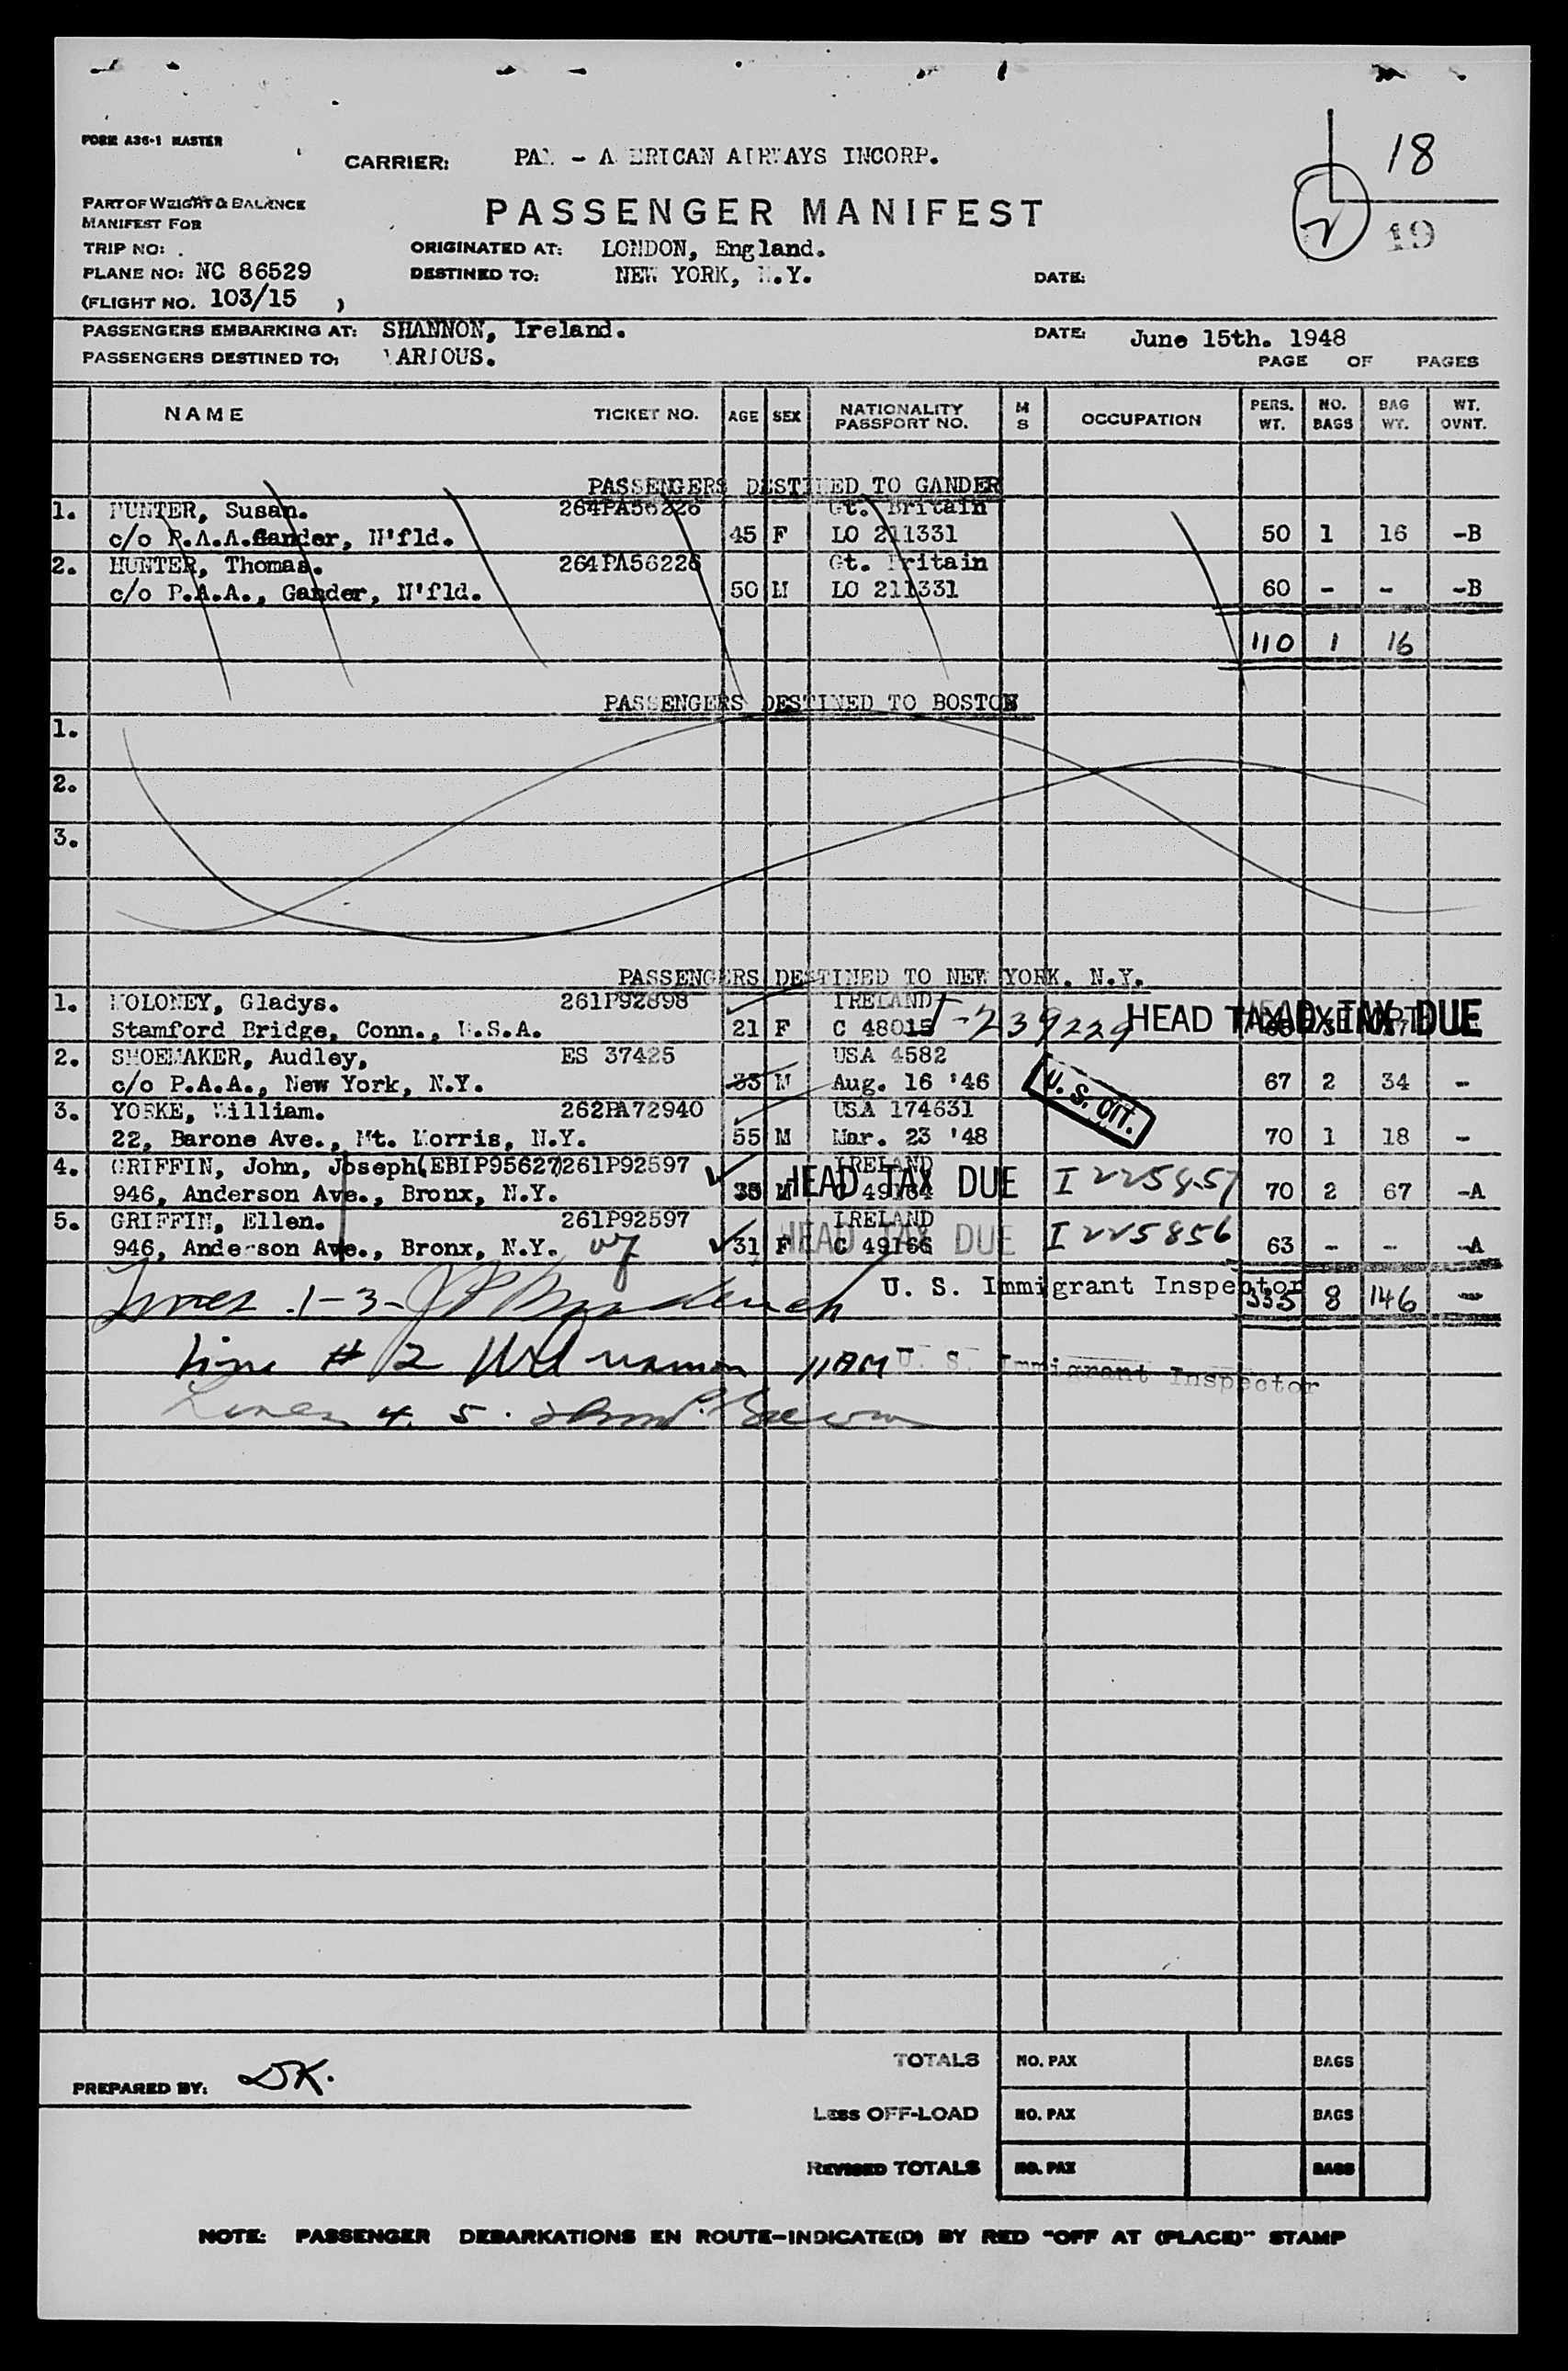 FORM A36-1 MASTER
CARRIER: PAN - AMERICAN AIRWAYS INCORP.
18
2
19
PART OF WEIGHT & BALANCE
MANIFEST FOR
PASSENGER MANIFEST
TRIP NO:
ORIGINATED AT: LONDON, England.
PLANE NO: NC 86529
DESTINED TO: NEW YORK, N.Y.
DATE:
(FLIGHT NO. 103/15 )
PASSENGERS EMBARKING AT: SHANNON, Ireland.
DATE: June 15th. 1948
PASSENGERS DESTINED TO: VARIOUS.
PAGE OF PAGES
NAME TICKET NO. AGE SEX NATIONALITY PASSPORT NO. M S OCCUPATION PERS. WT. NO. BAGS BAG WT. WT. OVNT.
PASSENGERS DESTINED TO GANDER
1. HUNTER, Susan. 264PA56226 Gt. Britain
c/o P.A.A. Gander, N'fld. 45 F LO 211331 50 1 16 -B
2. HUNTER, Thomas. 264PA56226 Gt. Britain
c/o P.A.A., Gander, N'fld. 50 M LO 211331 60 - - -B
110 1 16
PASSENGERS DESTINED TO BOSTON
1.
2.
3.
PASSENGERS DESTINED TO NEW YORK, N.Y.
1. MOLONEY, Gladys. 261P92898 IRELAND
Stamford Bridge, Conn., U.S.A. 21 F C 48015 -239229 HEAD TAX EXEMPT HEAD TAX DUE
2. SHOEMAKER, Audley, ES 37425 USA 4582
c/o P.A.A., New York, N.Y. 33 M Aug. 16 '46 U. S. CIT. 67 2 34 -
3. YORKE, William. 262PA72940 USA 174631
22, Barone Ave., Mt. Morris, N.Y. 55 M Mar. 23 '48 70 1 18 -
4. GRIFFIN, John, Joseph(EBIP95627)261P92597 IRELAND
946, Anderson Ave., Bronx, N.Y. M HEAD TAX DUE I 225857 70 2 67 -A
5. GRIFFIN, Ellen. 261P92597 IRELAND
946, Anderson Ave., Bronx, N.Y. 31 F C 49166 HEAD TAX DUE I 225856 63 - - -A
Lines 1-3- U. S. Immigrant Inspector 335 8 146 -
Line # 2 U. S. Immigrant Inspector
Lines 4. 5.
TOTALS NO. PAX BAGS
PREPARED BY: DK.
Less OFF-LOAD NO. PAX BAGS
REVISED TOTALS NO. PAX BAGS
NOTE: PASSENGER DEBARKATIONS EN ROUTE-INDICATE(D) BY RED "OFF AT (PLACE)" STAMP